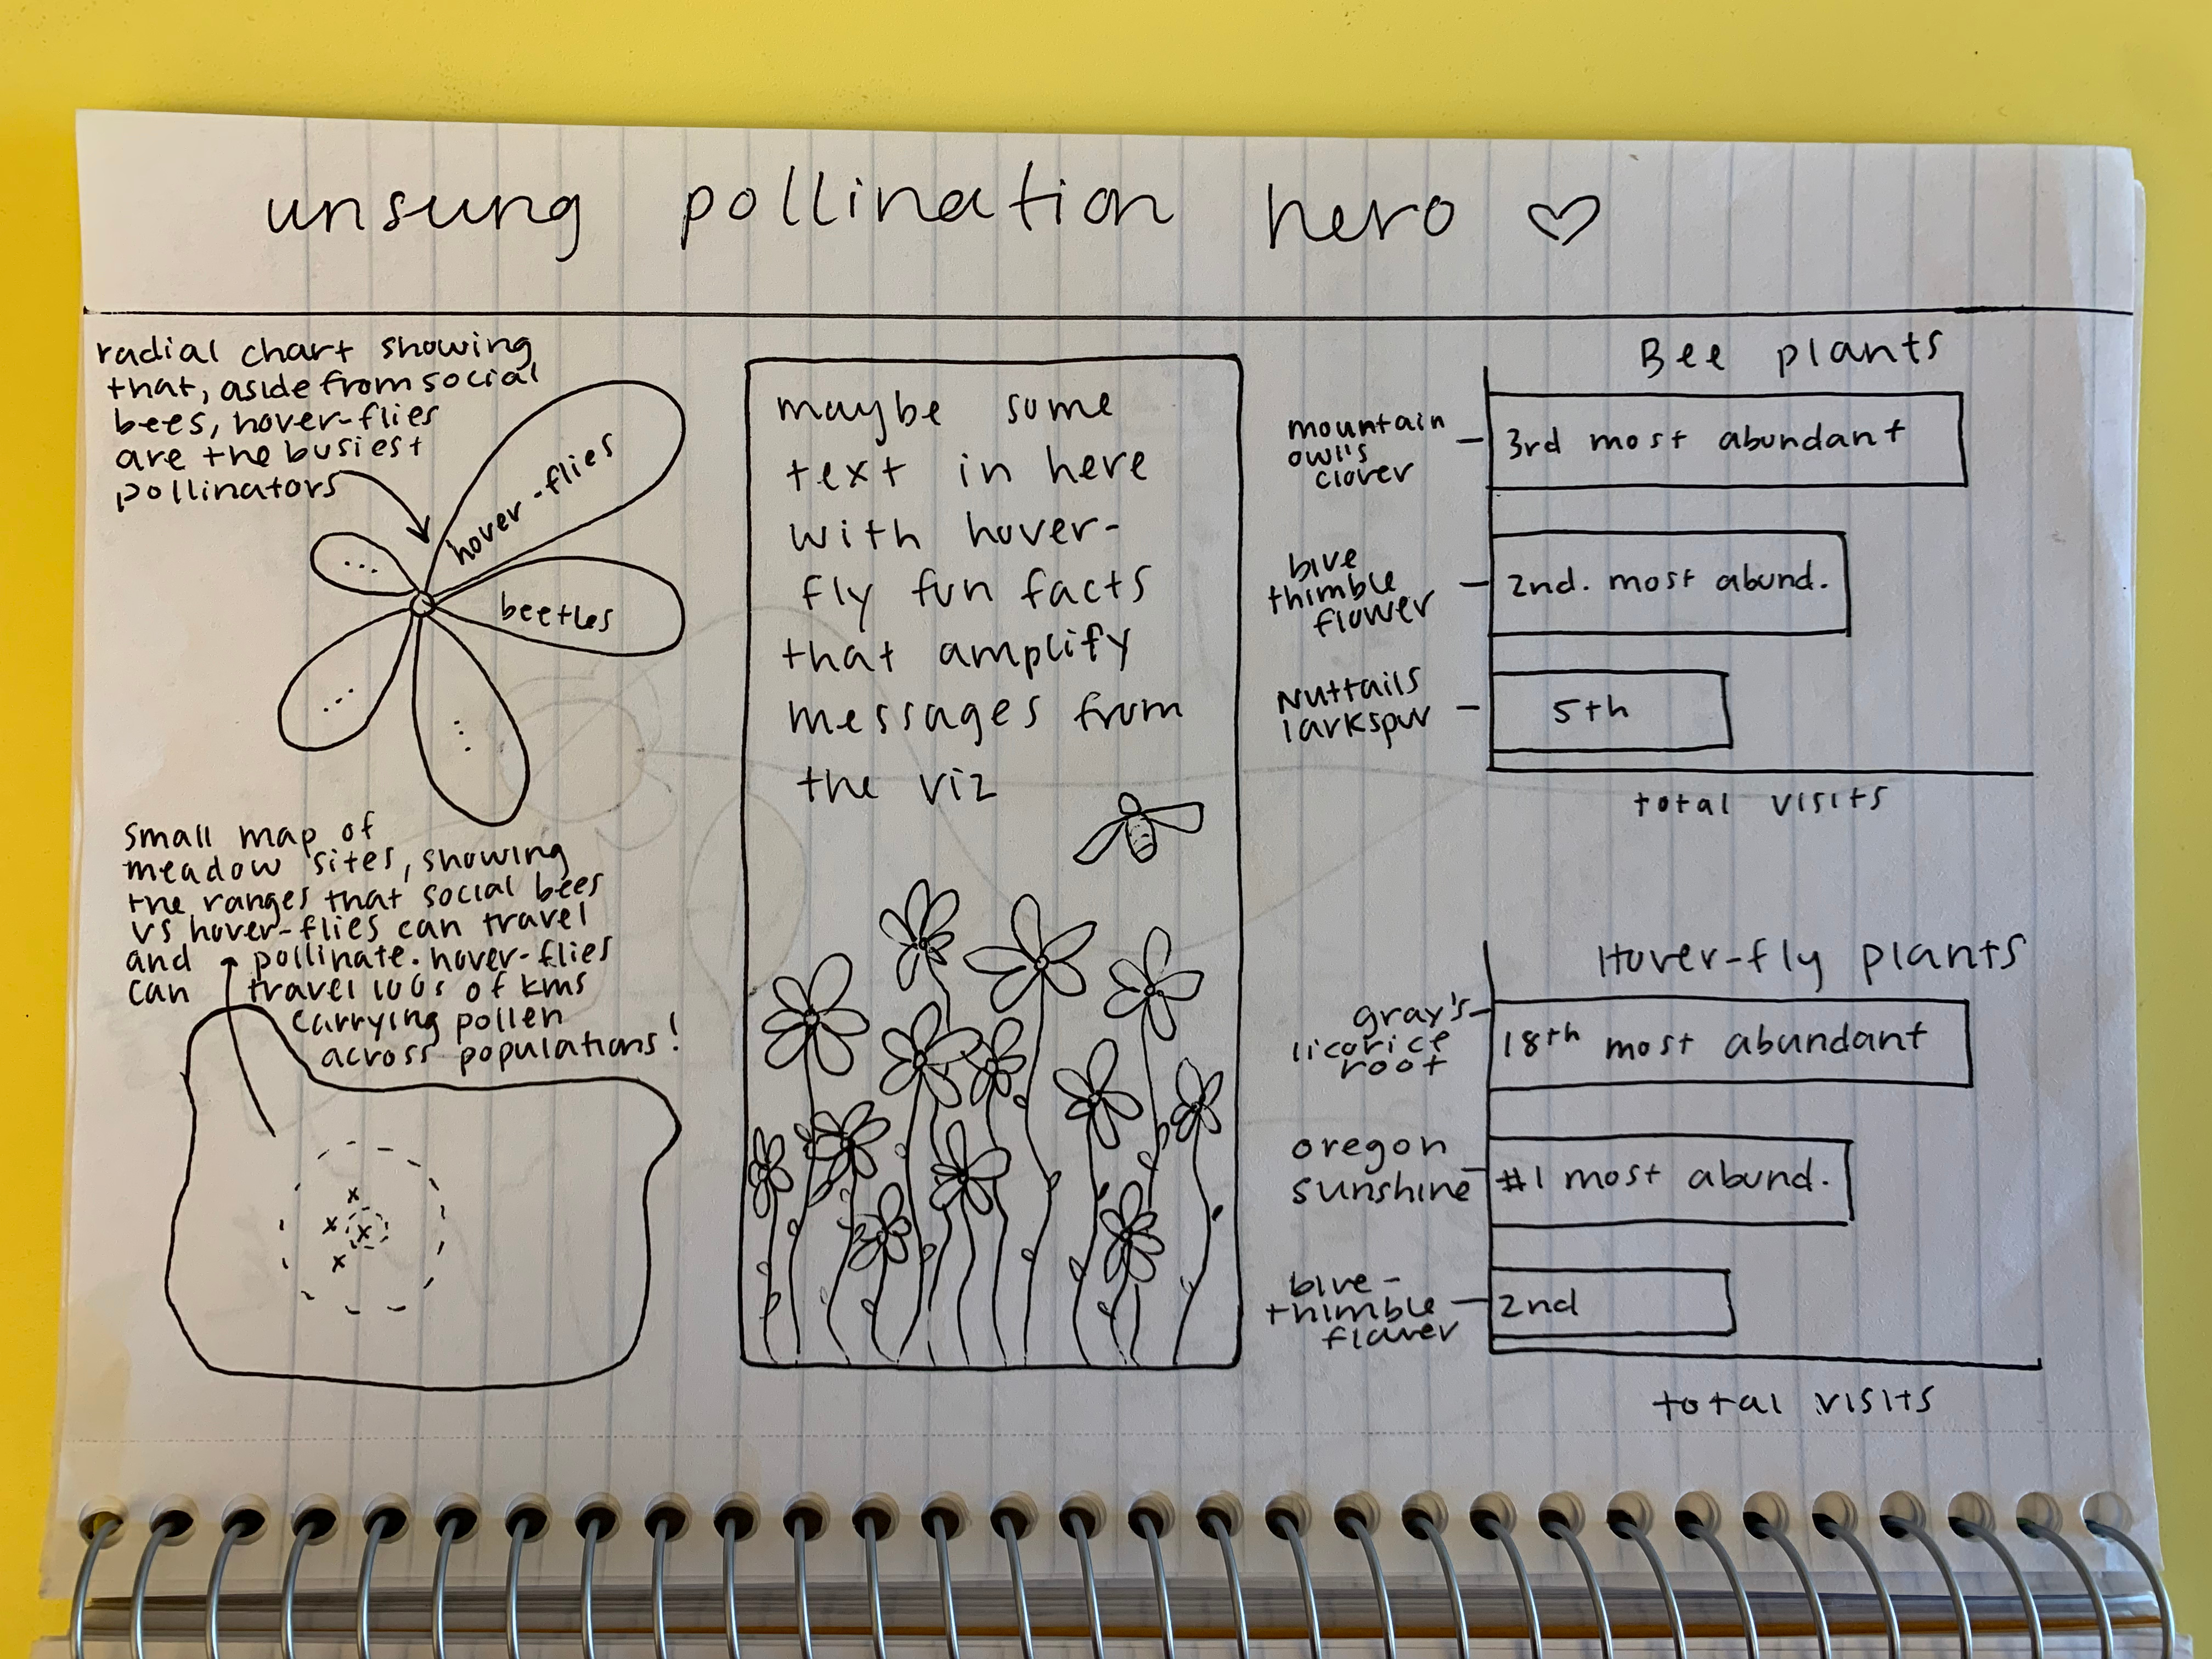 unsung pollination hero ♡
radial chart showing
that, aside from social
bees, hover-flies
are the busiest
pollinators
hover-flies
beetles
...
...
...
small map of
meadow sites, showing
the ranges that social bees
vs hover-flies can travel
and pollinate. hover-flies
can travel 100s of kms
carrying pollen
across populations!
x
x x
x
maybe some
text in here
with hover-
fly fun facts
that amplify
messages from
the viz
Bee plants
mountain
owl's
clover
3rd most abundant
blue
thimble
flower
2nd. most abund.
Nuttails
larkspur
5th
total visits
Hover-fly plants
gray's
licorice
root
18th most abundant
oregon
sunshine
#1 most abund.
blue-
thimble
flower
2nd
total visits